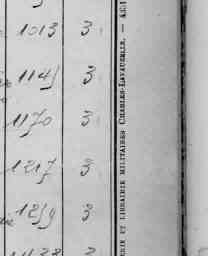 1013 3
1145 3
1170 3
1217 3
1259 3
ERIE ET LIBRAIRIE MILITAIRES CHARLES-LAVAUZELLE. —